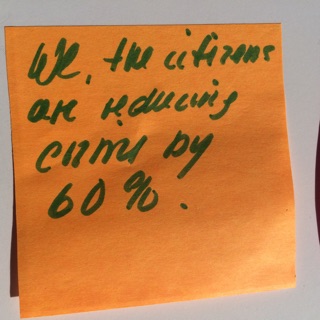 We, the citizens
are reducing
crime by
60%.